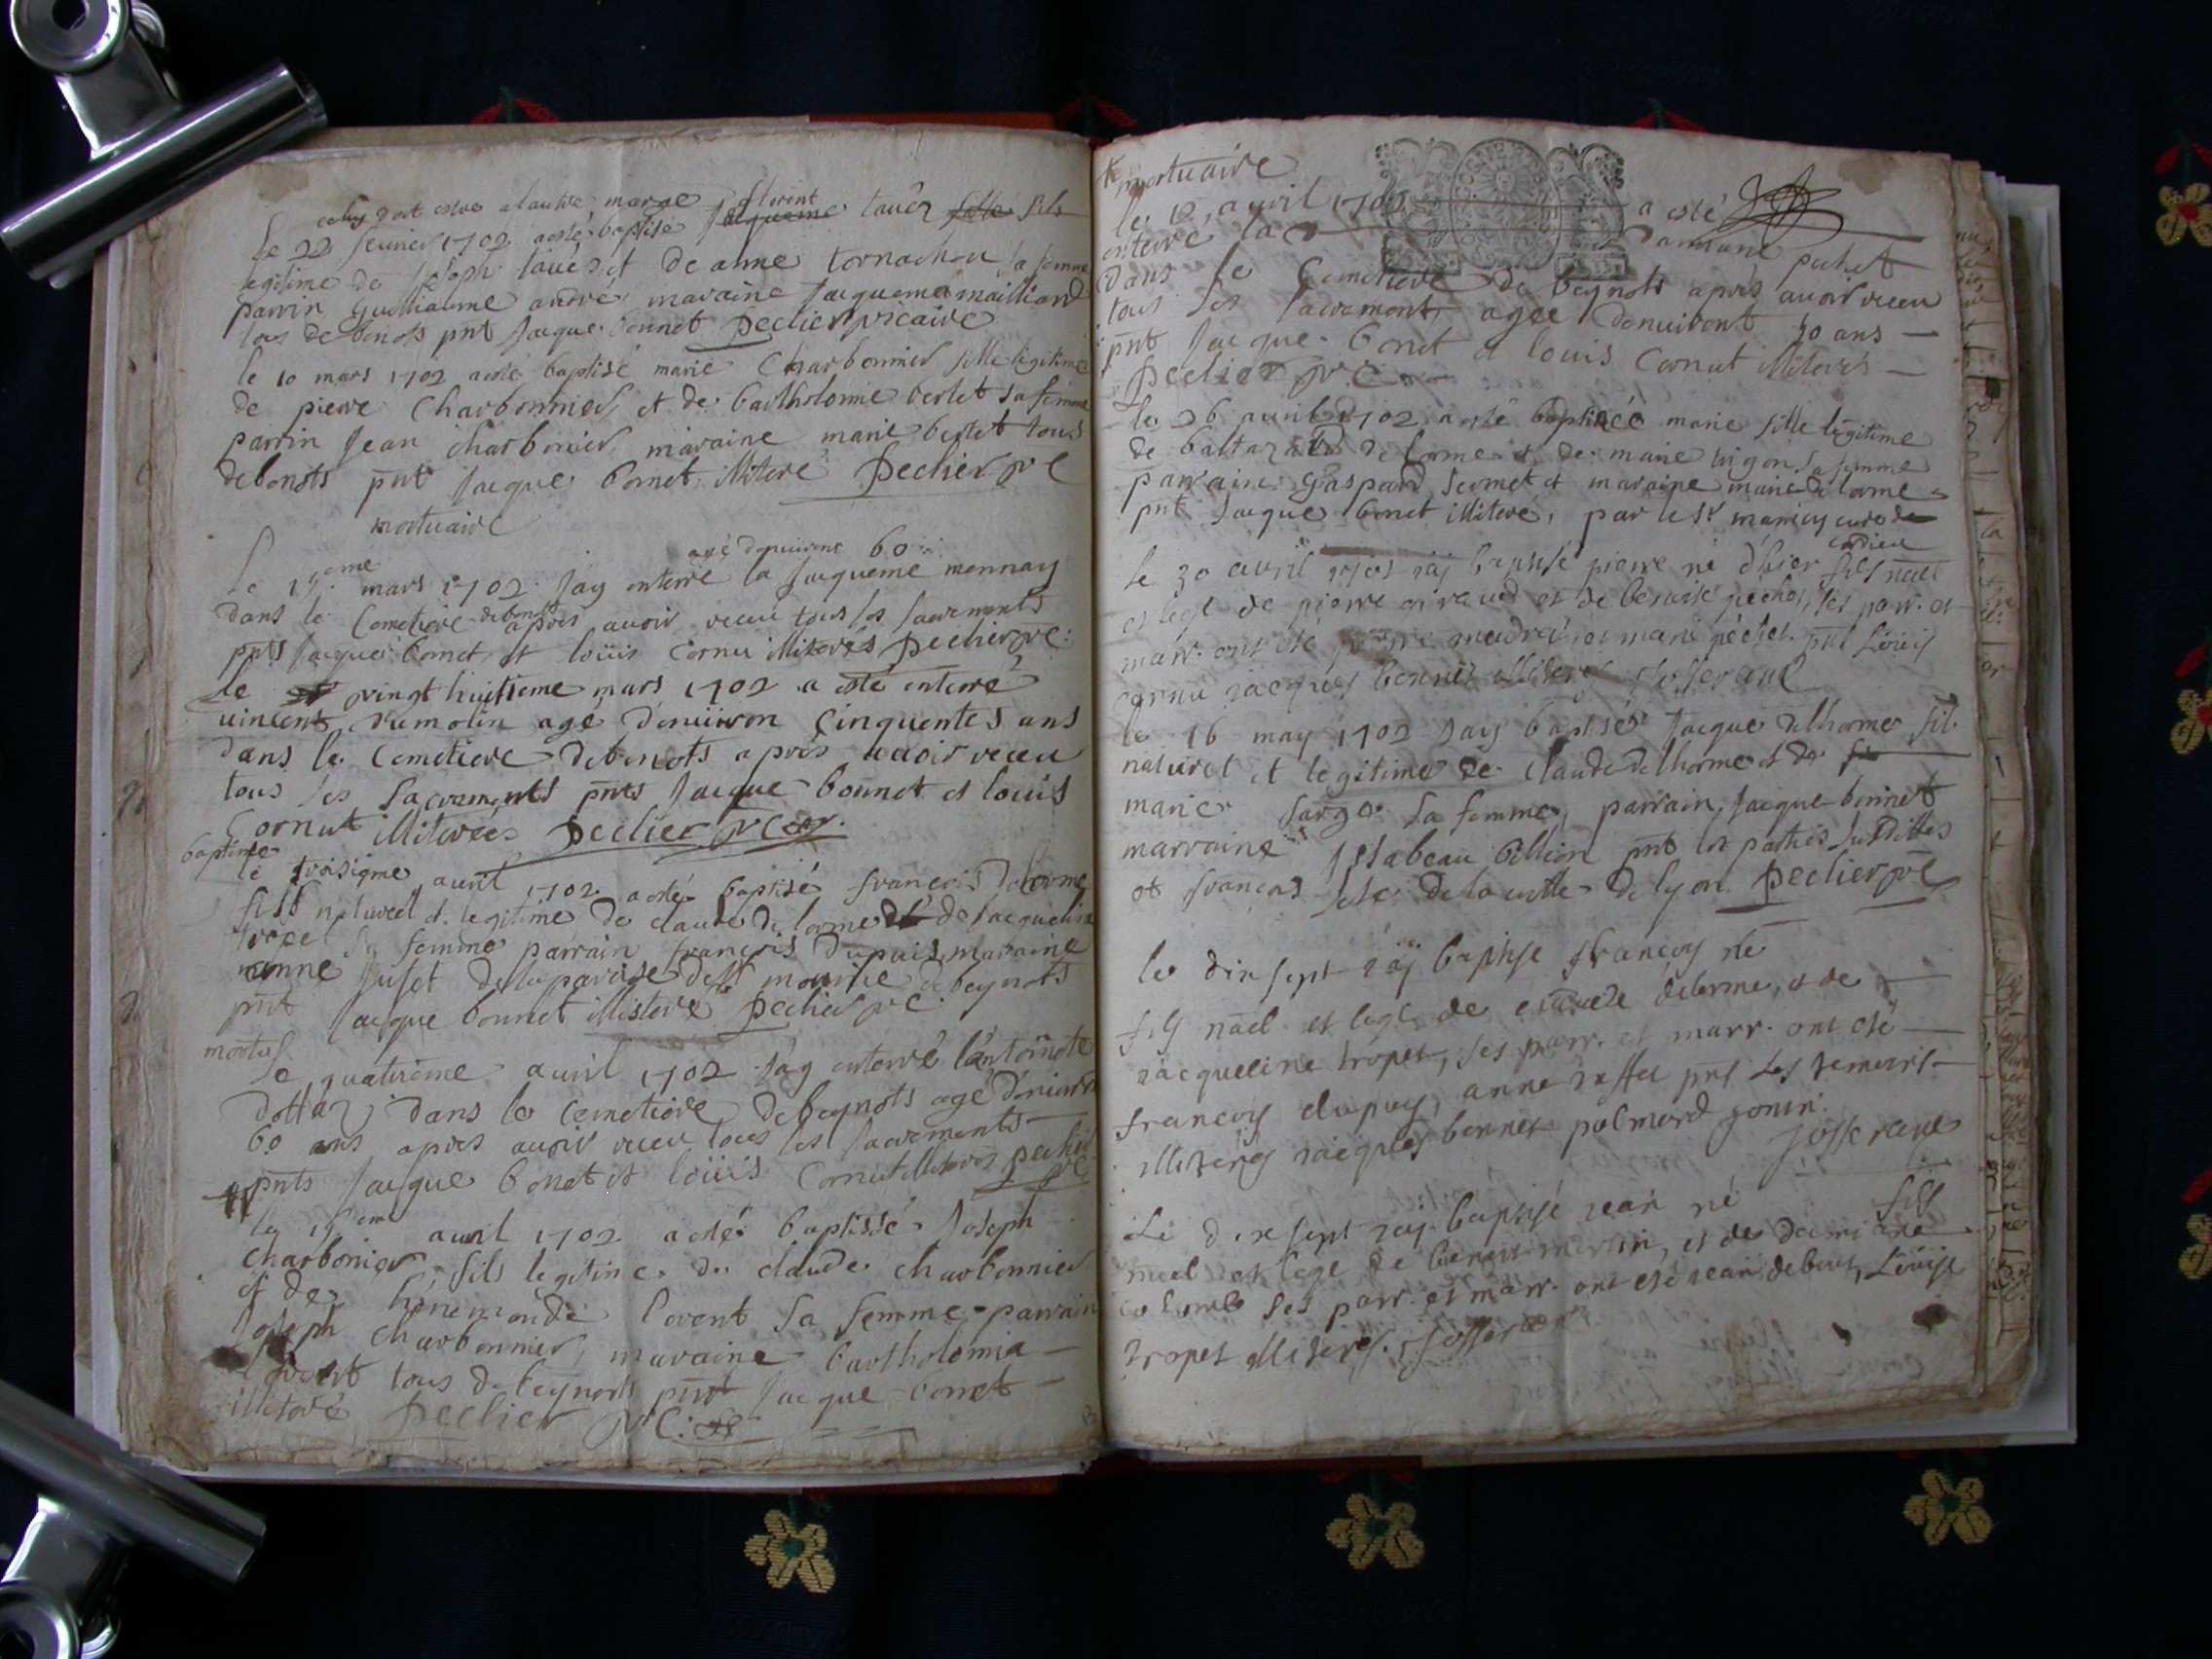 le 22 feurier 1702 a esté baptisé florent tauez fils
legitime de Joseph tauez et de anne sa femme
parrin andré maraine Jacqueme mailliand
tous de benots pnt Jacque bonnet peclier vicaire
le 10 mars 1702 a esté baptisé marie Charbonnier fille legitime
de pierre Charbonnier et de bartholomie berlet sa femme
parrin Jean charbonier, maraine marie berlet tous
de benots pnt Jacque bonet illiteré peclier vic
mortuaire
agé denuiront 60
mars 1702 Jay enterré la Jacqueme monnay
dans le Cemetiere de benots apres auoir receu tous les sacrements
pnts Jacque bonet et loüis Cornu illiterés peclier vic:
le vingt huitieme mars 1702 a esté enterré
uincent dumolin agé denuiron Cinquentes ans
dans le Cemetiere de benots apres auoir receu
tous les sacrements pnts Jacque bonnet et louis
Cornut illiterées peclier vic
baptime
le troisieme auril 1702 a esté baptisé francois Delorme
fils naturel et legitime de claude de lorme et de Jacqueline
tropet sa femme parrain francois Dupuis, maraine
anne Jufet de la paroise de St mourice de beynots
pnt Jacque bonnet illisteré peclier vic
mortuf
le quatrieme auril 1702 Jay enterré lantoinete
dottaz dans le Cemetiere de beynots agé denuiron
60 ans apres auoir receu tous les sacrements
pnts Jacque bonet et loüis Cornut illiteres peclier
vic
le auril 1702 a esté baptissé Joseph
charbonier fils legitime de claude charbonnier
et de lorent sa femme parrain
Joseph charbonnier, maraine bartholomia
lorent tous de beynots pnt Jacque bonet
illiteré peclier vic:
mortuaire
le 12, auril 1702 a esté
enterré la pechet
dans le Cemetiere de beynots apres auoir receu
tous les sacrements agée denuiront 50 ans
pnt Jacque bonet et louis Cornut illiterés
peclier vic
le 26 auril 1702 a esté baptisée marie fille legitime
de baltazar de lorme et de marie sa femme
parrain Gaspard sermet et maraine marie de lorme
pnt Jacque bonet illiteré, par le Sr curé de
le 30 auril 1702 j'aÿ baptisé pierre né d'hier fils nael
et legt de pierre et de benoite pechet, ses parr. et
marr. ont été pierre et marie péchet. pnt Loüis
cornu jacques bonnet illiteres Josserane
le 16 may 1702 Jay baptisé Jacque delhorme fils
naturel et legitime de claude delhorme et de
marie farge sa femme, parrain, Jacque bonnet
marraine Issabeau billion pnt les parties susdittes
et francois de la uille de lyon peclier vic
le dixsept j'aÿ baptise françoy né
fils nael et legt de claude delorme, et de
jacqueline tropet, ses parr. et marr. ont eté
françoy dupuy, anne juffet pnt les temoins
illiterés jacques bonnet gonin.
Josserane
Le dixsept j'aÿ baptisé jean né fils
nael et legt de benoit martin, et de damiane
colomb ses parr. et marr. ont eté jean debout, Loüise
tropet illiteres. Josserane